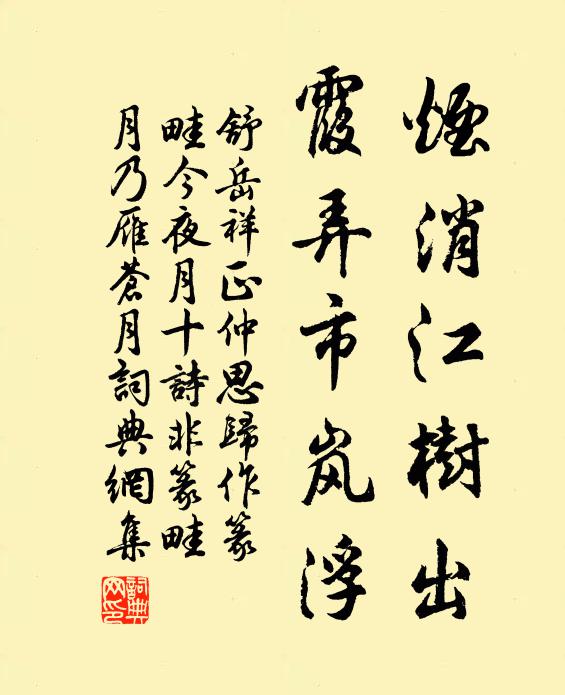 煙消江樹出
霞弄市岚浮
舒岳祥正仲思歸作篆
畦今夜月十詩非篆畦
月乃雁蒼月詞典網集
詞典網印